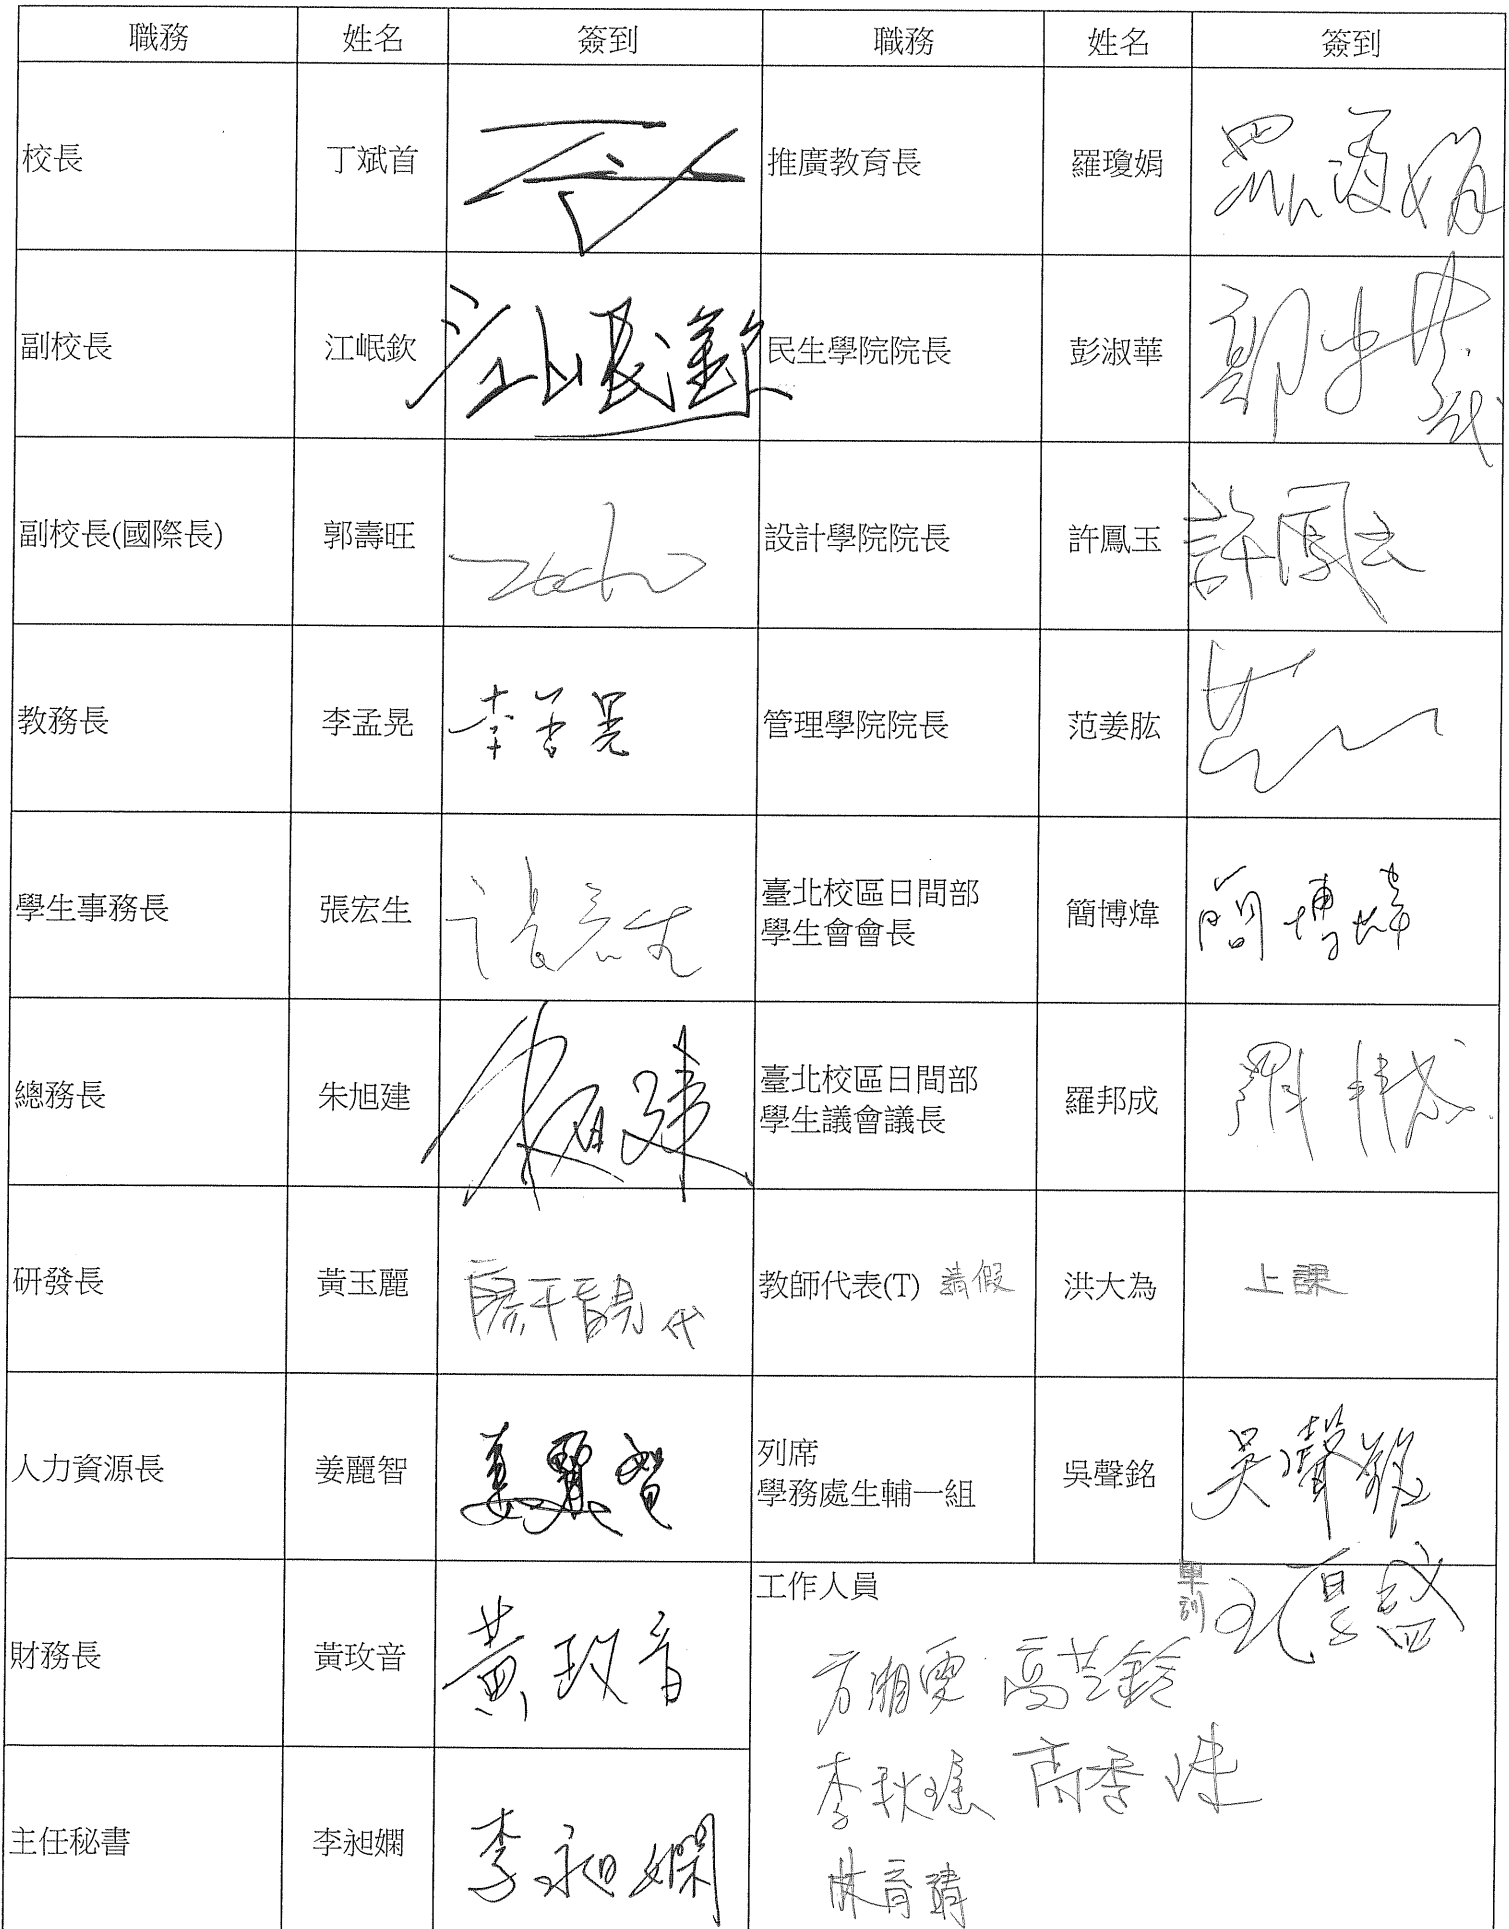 職務 姓名 簽到 職務 姓名 簽到
校長 丁斌首 推廣教育長 羅瓊娟 羅瓊娟
副校長 江岷欽 江岷欽 民生學院院長 彭淑華
副校長(國際長) 郭壽旺 設計學院院長 許鳳玉 許鳳玉
教務長 李孟晃 李孟晃 管理學院院長 范姜肱
學生事務長 張宏生 張宏生 臺北校區日間部
學生會會長 簡博煒 簡博煒
總務長 朱旭建 朱旭建 臺北校區日間部
學生議會議長 羅邦成 羅邦成
研發長 黃玉麗 代 教師代表(T) 請假 洪大為 上課
人力資源長 姜麗智 姜麗智 列席
學務處生輔一組 吳聲銘 吳聲銘
財務長 黃玫音 黃玫音 工作人員 軍訓
方湘雯 高芸鈴
主任秘書 李昶嫻 李昶嫻 李秋瑤 高季珠
林育靖